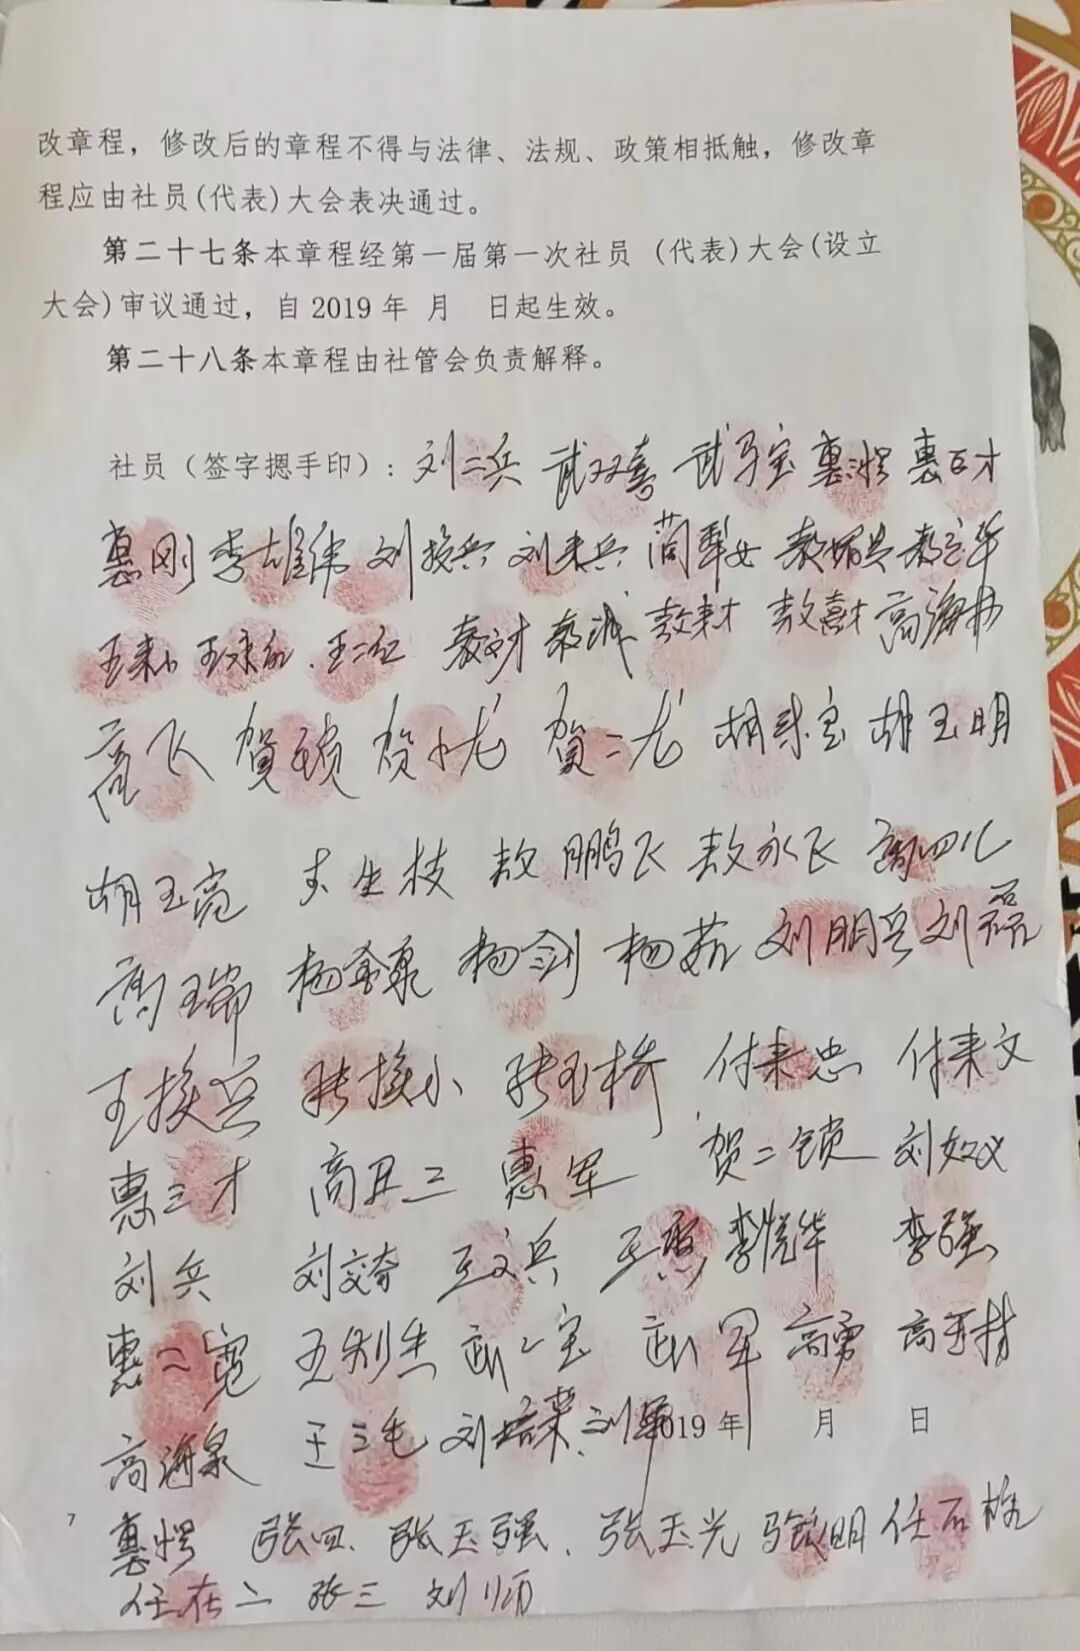 改章程，修改后的章程不得与法律、法规、政策相抵触，修改章
程应由社员(代表)大会表决通过。
第二十七条本章程经第一届第一次社员 (代表)大会(设立
大会)审议通过，自 2019 年 月 日起生效。
第二十八条本章程由社管会负责解释。
社员（签字摁手印）：刘二兵 武双喜 武 宝 惠 惠 才
惠刚 李雄伟 刘挨兵 刘来兵
王来小 王来红 王二红 敖来才 敖喜才 高海
高飞 贺 锁 贺小龙 贺二龙 胡来宝 胡玉明
胡玉亮 生枝 敖鹏飞 敖永飞 高四儿
高瑞 杨 泉 杨剑 杨茹 刘朋兵 刘磊
王挨兵 张挨小 张玉桥 付来忠 付来文
惠三才 高丑三 惠军 贺二锁 刘如义
刘兵 刘文奇 王文兵 王惠 李悦华 李强
惠二宽 王制生 武二宝 武军 高勇 高
高海泉 王三毛 刘培荣 刘军 2019 年 月 日
7
惠 张四 张玉强 张玉光 骆 明 任石栓
任在二 张三 刘师